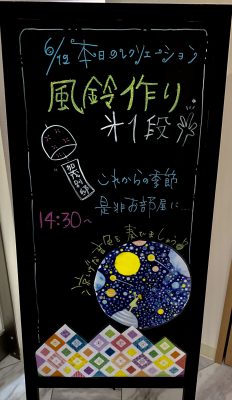 6/12 本日のレクリエーション
風鈴作り
これからの季節
是非お部屋に
14:30～
涼しげな音色を奏でましょう♪